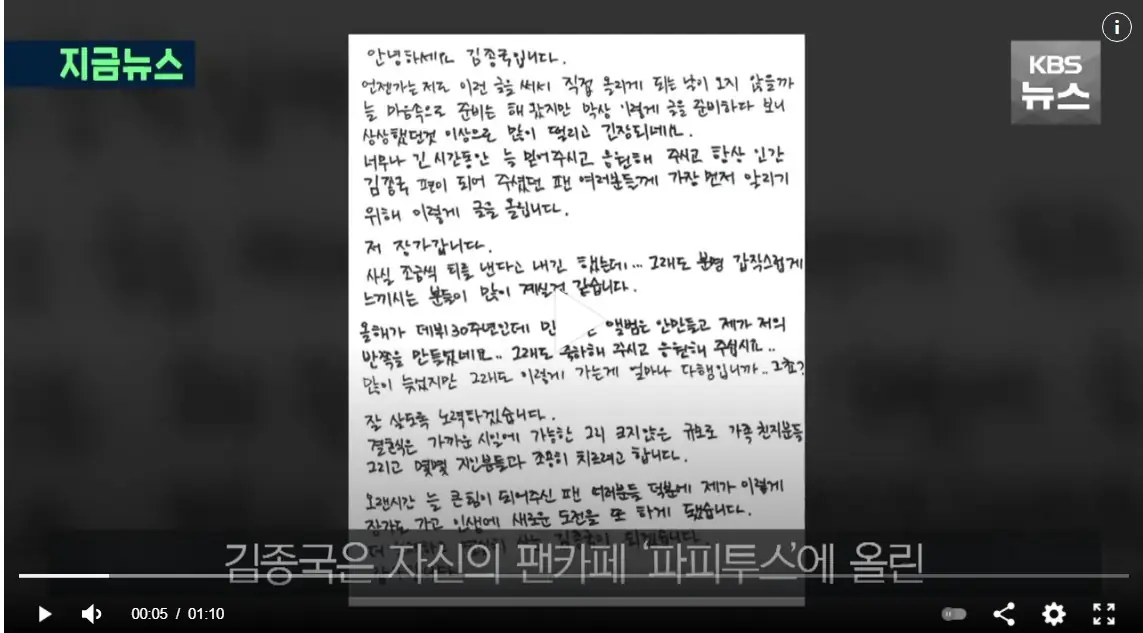 지금뉴스
KBS
뉴스
안녕하세요 김종국입니다.
언젠가는 저도 이런 글을 써서 직접 올리게 되는 날이 오지 않을까
늘 마음속으로 준비는 해 왔지만 막상 이렇게 글을 준비하다 보니
상상했던것 이상으로 많이 떨리고 긴장되네요.
너무나 긴 시간동안 늘 믿어주시고 응원해 주시고 항상 인간
김종국 편이 되어 주셨던 팬 여러분들께 가장 먼저 알리기
위해 이렇게 글을 올립니다.
저 장가갑니다.
사실 조금씩 티를 낸다고 내긴 했는데... 그래도 분명 갑작스럽게
느끼시는 분들이 많이 계실것 같습니다.
올해가 데뷔30주년인데 앨범은 안만들고 제가 저의
반쪽을 만들었네요.. 그래도 축하해 주시고 응원해 주십시요..
많이 늦었지만 그래도 이렇게 가는게 얼마나 다행입니까.. 그쵸?
잘 살도록 노력하겠습니다.
결혼식은 가까운 시일에 가능한 그리 크지않은 규모로 가족 친지분들
그리고 몇몇 지인분들과 조용히 치르려고 합니다.
오랜시간 늘 큰힘이 되어주신 팬 여러분들 덕분에 제가 이렇게
장가도 가고 인생에 새로운 도전을 또 하게 됐습니다.
김종국이 되겠습니다.
김종국은 자신의 팬카페 '파피투스'에 올린
00:05 / 01:10